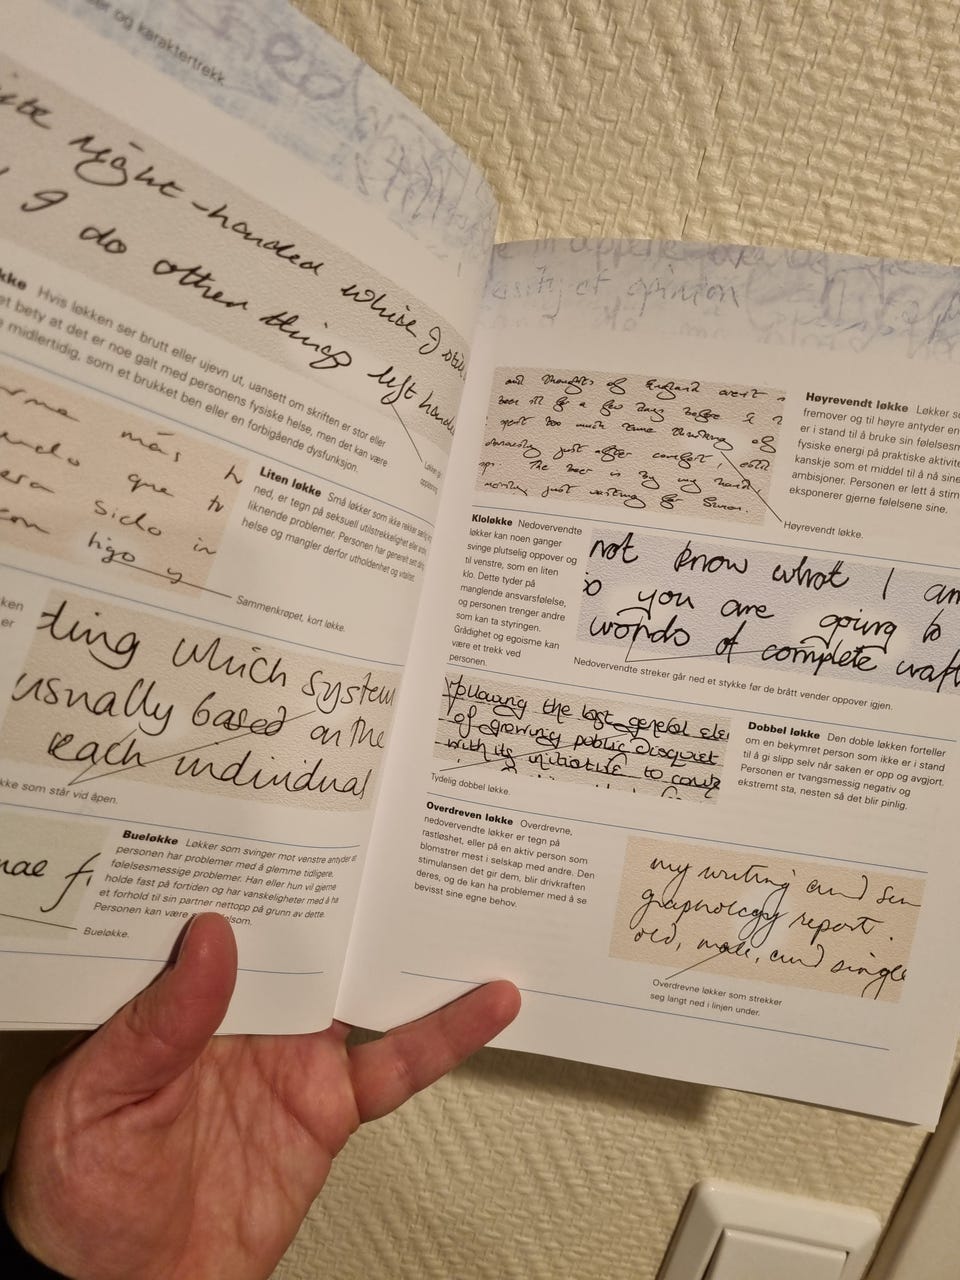 og karaktertrekk
right-handed while I
I do other things left
Hvis løkken ser brutt eller ujevn ut, uansett om skriften er stor eller
bety at det er noe galt med personens fysiske helse, men det kan være
midlertidig, som et brukket ben eller en forbigående dysfunksjon.
más
que tu
sido in
higo y
Liten løkke Små løkker som ikke rekker
ned, er tegn på seksuell utilstrekkelighet eller
liknende problemer. Personen har generelt
helse og mangler derfor utholdenhet og vitalitet.
Sammenkrøpet, kort løkke.
ting which system
usually based on the
each individual
som står vid åpen.
Bueløkke Løkker som svinger mot venstre antyder at
personen har problemer med å glemme tidligere,
følelsesmessige problemer. Han eller hun vil gjerne
holde fast på fortiden og har vanskeligheter med å ha
et forhold til sin partner nettopp på grunn av dette.
Personen kan være
Bueløkke.
of opinion
and thoughts of England
a few days before I
spent too much time thinking of
just after
The beer is by my hand
just waiting for Simon.
Høyrevendt løkke Løkker
fremover og til høyre antyder
er i stand til å bruke sin
fysiske energi på praktiske
kanskje som et middel til å nå sine
ambisjoner. Personen er lett å
eksponerer gjerne følelsene sine.
Høyrevendt løkke.
Kloløkke Nedovervendte
løkker kan noen ganger
svinge plutselig oppover og
til venstre, som en liten
klo. Dette tyder på
manglende ansvarsfølelse,
og personen trenger andre
som kan ta styringen.
Grådighet og egoisme kan
være et trekk ved
personen.
not know what I am
so you are going to
words of complete
Nedovervendte streker går ned et stykke før de brått vender oppover igjen.
following the last general
of growing public disquiet
with its initiative to
Tydelig dobbel løkke.
Dobbel løkke Den doble løkken forteller
om en bekymret person som ikke er i stand
til å gi slipp selv når saken er opp og avgjort.
Personen er tvangsmessig negativ og
ekstremt sta, nesten så det blir pinlig.
Overdreven løkke Overdrevne,
nedovervendte løkker er tegn på
rastløshet, eller på en aktiv person som
blomstrer mest i selskap med andre. Den
stimulansen det gir dem, blir drivkraften
deres, og de kan ha problemer med å se
bevisst sine egne behov.
my writing and
graphology report.
old, male, and single
Overdrevne løkker som strekker
seg langt ned i linjen under.